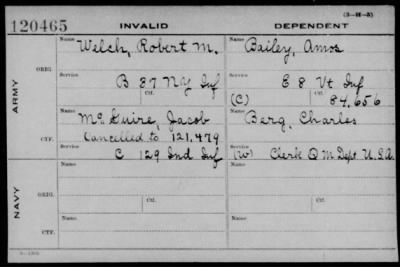 (3-H-3)
120465 INVALID DEPENDENT
Name Welch, Robert M. Name Bailey, Amos
ORIG.
Service B 87 NY Inf Service E 8 Vt Inf
Ctf. (C) Ctf. 84,656
ARMY
Name McGuire, Jacob Name Berg, Charles
Cancelled to 121,479
CTF. Service C 129 Ind Inf Service (W) Clerk Q M Dept U.S.A.
Name Name
NAVY
ORIG. Ctf. Ctf.
Name Name
CTF.